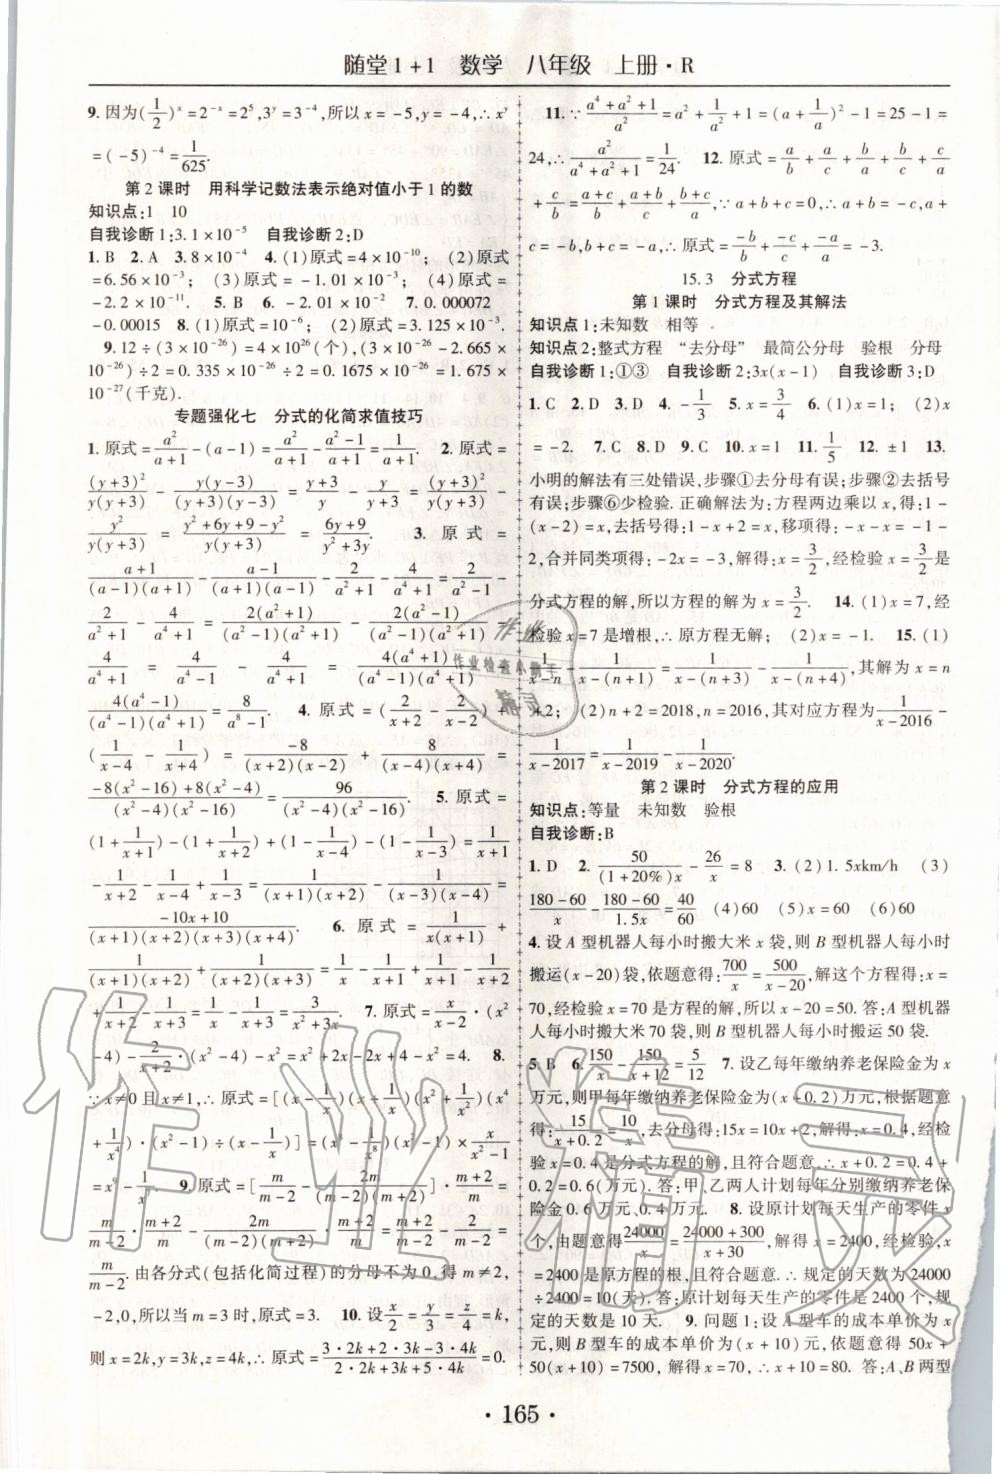 随堂 1 + 1 数学 八年级 上册 · R
9. 因为(1/2)^x = 2^{-x} = 2^5, 3^y = 3^{-4}, 所以 x = -5, y = -4, ∴ x^y
= (-5)^{-4} = 1/625.
第 2 课时 用科学记数法表示绝对值小于 1 的数
知识点:1 10
自我诊断 1:3.1 × 10^{-5} 自我诊断 2:D
1. B 2. A 3. 8 × 10^{-4} 4. (1)原式 = 4 × 10^{-10}; (2)原式
= 6.56 × 10^{-3}; (3)原式 = -1.01 × 10^{-3}; (4)原式 =
-2.2 × 10^{-11}. 5. B 6. -2.01 × 10^{-2} 7. 0.000072
-0.00015 8. (1)原式 = 10^{-6}; (2)原式 = 3.125 × 10^{-3}.
9. 12 ÷ (3 × 10^{-26}) = 4 × 10^{26}(个), (5.3 × 10^{-26} - 2.665 ×
10^{-26}) ÷ 2 = 0.335 × 10^{-26} ÷ 2 = 0.1675 × 10^{-26} = 1.675 ×
10^{-27}(千克).
专题强化七 分式的化简求值技巧
1. 原式 = a²/(a+1) - (a-1) = a²/(a+1) - (a²-1)/(a+1) = 1/(a+1). 2. 原式 =
(y+3)²/(y(y+3)) - y(y-3)/((y+3)(y-3)) = (y+3)/y - y/(y+3) = (y+3)²/(y(y+3)) -
y²/(y(y+3)) = (y²+6y+9-y²)/(y(y+3)) = (6y+9)/(y²+3y). 3. 原式 =
(a+1)/((a-1)(a+1)) - (a-1)/((a+1)(a-1)) - 2/(a²+1) - 4/(a⁴+1) = 2/(a²-1) -
2/(a²+1) - 4/(a⁴+1) = 2(a²+1)/((a²-1)(a²+1)) - 2(a²-1)/((a²-1)(a²+1)) -
4/(a⁴+1) = 4/(a⁴-1) - 4/(a⁴+1) = 4(a⁴+1)/((a⁴-1)(a⁴+1)) -
4(a⁴-1)/((a⁴-1)(a⁴+1)) = 8/(a⁸-1). 4. 原式 = (2/(x+2) - 2/(x-2)) +
(1/(x-4) - 1/(x+4)) = -8/((x+2)(x-2)) + 8/((x-4)(x+4)) =
(-8(x²-16)+8(x²-4))/((x²-4)(x²-16)) = 96/((x²-4)(x²-16)). 5. 原式 =
(1 + 1/(x+1)) - (1 + 1/(x+2)) + (1 - 1/(x-4)) - (1 - 1/(x-3)) = 1/(x+1)
- 1/(x+2) - 1/(x-4) + 1/(x-3) = 1/((x+1)(x+2)) - 1/((x-3)(x-4)) =
(-10x+10)/((x+1)(x+2)(x-3)(x-4)). 6. 原式 = 1/(x(x+1)) +
1/((x+1)(x+2)) + 1/((x+2)(x+3)) = 1/x - 1/(x+1) + 1/(x+1) - 1/(x+2)
+ 1/(x+2) - 1/(x+3) = 1/x - 1/(x+3) = 3/(x²+3x). 7. 原式 = x/(x-2) · (x²
-4) - 2/(x+2) · (x²-4) - x² = x² + 2x - 2x + 4 - x² = 4. 8.
∵ x≠0 且 x≠1, ∴ 原式 = [(x - 1/x)(x + 1/x)(x² + 1/x²)(x⁴
+ 1/x⁴) · (x²-1) ÷ (x - 1/x)] = (x⁸ - 1/x⁸) · (x²-1) × x/(x²-1)
= x⁹ - 1/x⁷. 9. 原式 = [m/(m-2) - 2m/((m-2)(m+2))] · (m+2)/m =
m/(m-2) · (m+2)/m - 2m/((m-2)(m+2)) · (m+2)/m = (m+2)/(m-2) - 2/(m-2) =
m/(m-2). 由各分式(包括化简过程)的分母不为 0, 得 m≠2,
-2, 0, 所以当 m = 3 时, 原式 = 3. 10. 设 x/2 = y/3 = z/4 = k,
则 x = 2k, y = 3k, z = 4k, ∴ 原式 = (3·2k+2·3k-3·4k)/(2·2k+3·3k+5·4k) = 0.
11. ∵ (a⁴+a²+1)/a² = a² + 1/a² + 1 = (a + 1/a)² - 1 = 25 - 1 =
24, ∴ a²/(a⁴+a²+1) = 1/24. 12. 原式 = a/b + a/c + b/a + b/c + c/a
+ c/b = (a+c)/b + (a+b)/c + (b+c)/a. ∵ a+b+c=0, ∴ a+b=-c, a+
c=-b, b+c=-a, ∴ 原式 = -b/b + -c/c + -a/a = -3.
15.3 分式方程
第 1 课时 分式方程及其解法
知识点 1:未知数 相等
知识点 2:整式方程 “去分母” 最简公分母 验根 分母
自我诊断 1:①③ 自我诊断 2:3x(x-1) 自我诊断 3:D
1. C 2. D 3. D 4. -1/3 5. x = 3/4 6. (1)x = 1; (2)x
= -2. 7. C 8. D 9. C 10. x = 1 11. 1/5 12. ±1 13.
小明的解法有三处错误, 步骤①去分母有误; 步骤②去括号
有误; 步骤⑥少检验. 正确解法为: 方程两边乘以 x, 得: 1 -
(x-2) = x, 去括号得: 1-x+2=x, 移项得: -x-x=-1-
2, 合并同类项得: -2x=-3, 解得: x=3/2, 经检验 x=3/2 是
分式方程的解, 所以方程的解为 x=3/2. 14. (1)x=7, 经
检验 x=7 是增根, ∴ 原方程无解; (2)x=-1. 15. (1)
1/(x-n) - 1/(x-(n+1)) = 1/(x-(n+3)) - 1/(x-(n+4)), 其解为 x=n
+2; (2)n+2=2018, n=2016, 其对应方程为 1/(x-2016) -
1/(x-2017) = 1/(x-2019) - 1/(x-2020).
第 2 课时 分式方程的应用
知识点:等量 未知数 验根
自我诊断:B
1. D 2. 50/((1+20%)x) - 26/x = 8 3. (2)1.5xkm/h (3)
(180-60)/x - (180-60)/1.5x = 40/60 (4)60 (5)x=60 (6)60
4. 设 A 型机器人每小时搬大米 x 袋, 则 B 型机器人每小时
搬运(x-20)袋, 依题意得: 700/x = 500/(x-20), 解这个方程得: x=
70, 经检验 x=70 是方程的解, 所以 x-20=50. 答: A 型机器
人每小时搬大米 70 袋, 则 B 型机器人每小时搬运 50 袋.
5. B 6. 150/x - 150/(x+12) = 5/12 7. 设乙每年缴纳养老保险金为 x
万元, 则甲每年缴纳养老保险金为(x+0.2)万元, 根据题意
得: 15/(x+0.2) = 10/x, 去分母得: 15x=10x+2, 解得: x=0.4, 经检
验 x=0.4 是分式方程的解, 且符合题意, ∴ x+0.2=0.4+
0.2=0.6(万元). 答: 甲、乙两人计划每年分别缴纳养老保
险金 0.6 万元、0.4 万元. 8. 设原计划每天生产的零件 x
个, 由题意得 24000/x = (24000+300)/(x+30), 解得 x=2400, 经检验, x
=2400 是原方程的根, 且符合题意. ∴ 规定的天数为 24000
÷2400=10(天). 答: 原计划每天生产的零件是 2400 个, 规
定的天数是 10 天. 9. 问题 1: 设 A 型车的成本单价为 x
元, 则 B 型车的成本单价为(x+10)元, 依题意得 50x+
50(x+10)=7500, 解得 x=70, ∴ x+10=80. 答: A、B 两型
· 165 ·
作业检查小帮手
作业精灵